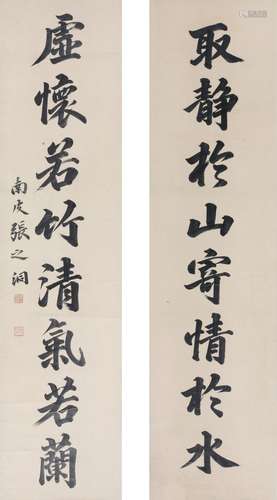 取静於山寄情於水
虛懷若竹清氣若蘭
南皮張之洞